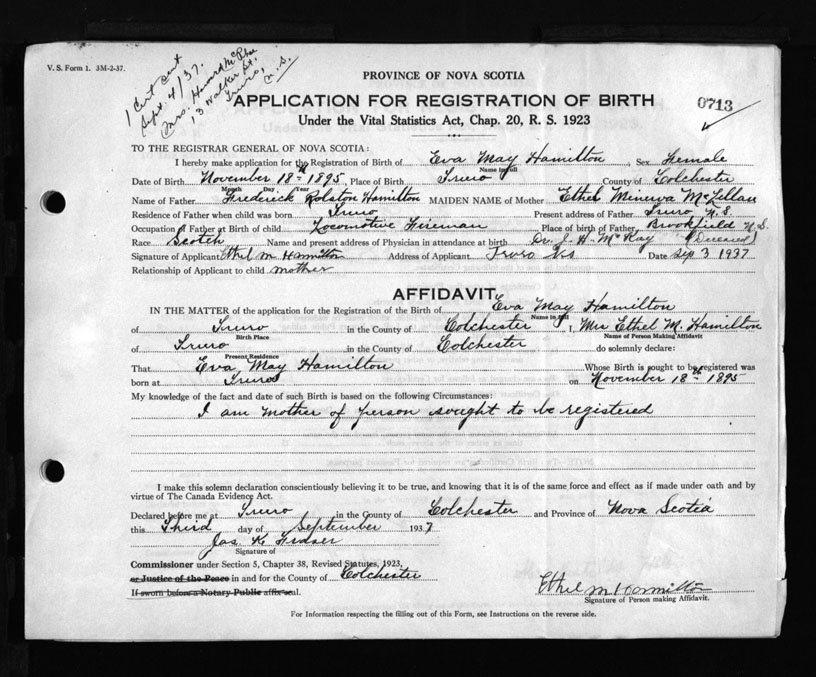 V. S. Form 1. 3M-2-37.
1 Cert cert
Sept. 4/37.
Mrs. Howard McPhee
13 Walker St.
Truro,
N.S.
PROVINCE OF NOVA SCOTIA
APPLICATION FOR REGISTRATION OF BIRTH
0713
Under the Vital Statistics Act, Chap. 20, R. S. 1923
TO THE REGISTRAR GENERAL OF NOVA SCOTIA:
I hereby make application for the Registration of Birth of Eva May Hamilton, Sex Female
Name in full
Date of Birth November 18th 1895, Place of Birth Truro County of Colchester
Month Day, Year
Name of Father Frederick Rolston Hamilton MAIDEN NAME of Mother Ethel Minerva McLellan
Residence of Father when child was born Truro Present address of Father Truro N.S.
Occupation of Father at Birth of child Locomotive Fireman Place of birth of Father Brookfield N.S.
Race Scotch Name and present address of Physician in attendance at birth Dr. J. H. McKay (Deceased)
Signature of Applicant Ethel M Hamilton Address of Applicant Truro NS Date Sep 3 1937
Relationship of Applicant to child mother
AFFIDAVIT
IN THE MATTER of the application for the Registration of the Birth of Eva May Hamilton
Name in full
of Truro in the County of Colchester I, Mrs Ethel M. Hamilton
Birth Place Name of Person Making Affidavit
of Truro in the County of Colchester do solemnly declare:
Present Residence
That Eva May Hamilton Whose Birth is sought to be registered was
born at Truro on November 18th 1895
My knowledge of the fact and date of such Birth is based on the following Circumstances:
I am mother of person sought to be registered
I make this solemn declaration conscientiously believing it to be true, and knowing that it is of the same force and effect as if made under oath and by
virtue of The Canada Evidence Act.
Declared before me at Truro in the County of Colchester and Province of Nova Scotia
this Third day of September 1937
Jas. K. Fraser
Signature of
Commissioner under Section 5, Chapter 38, Revised Statutes, 1923,
or Justice of the Peace in and for the County of Colchester
If sworn before a Notary Public affix seal.
Ethel M Hamilton
Signature of Person making Affidavit.
For Information respecting the filling out of this Form, see Instructions on the reverse side.